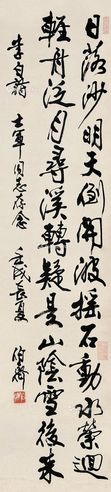 日落沙明天倒開波搖石動水縈迴
輕舟泛月尋溪轉疑是山陰雪後來
李白詩 士軍同志存念 壬戌長夏